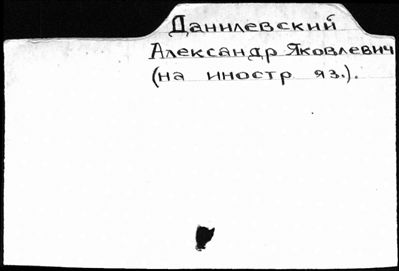 Данилевский
Александр Яковлевич
(на иностр яз.).